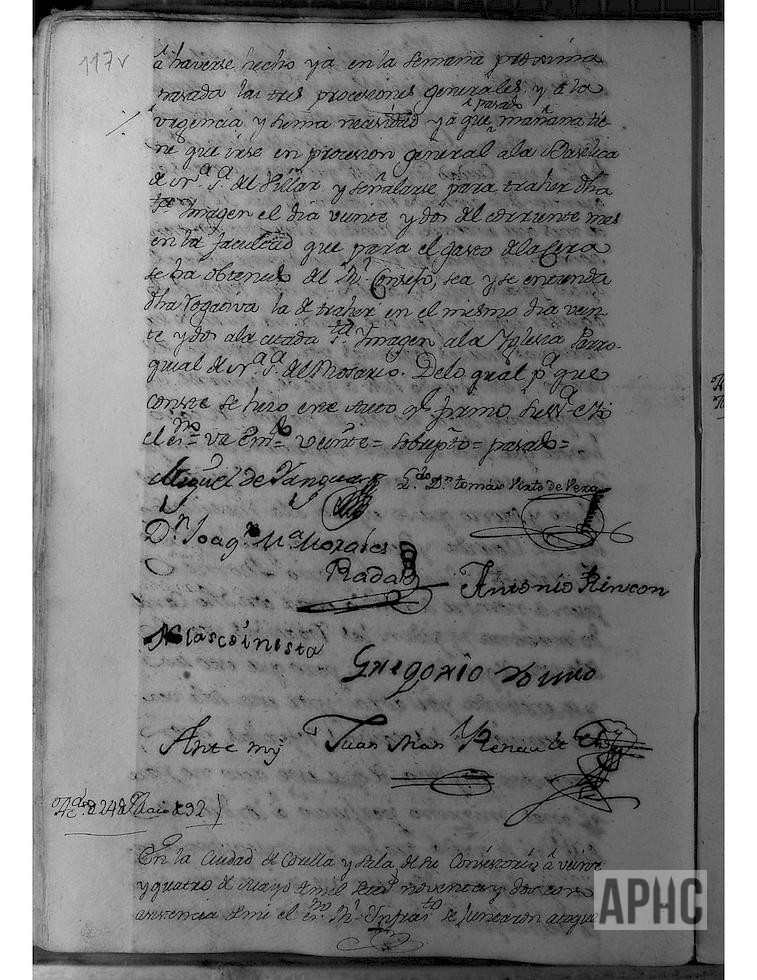 117v
â haverse hecho ya en la semana proxima
pasada las tres procesiones generales, y a la
pasado
vrgencia, y suma necesidad ya que mañana tie
ne que irse en procesion general a la Basilica
de nrâ Sâ del Pillar y señalarse para traher dha
Imagen el dia veinte y dos del corriente mes
en la facultad que para el gasto de la Cera
se ha obtenido del Rl Consejo, sea y se entienda
dha rogativa la de traher en el mismo dia vein
te y dos a la citada Sta Imagen a la Yglesia Parro-
quial de nrâ Sâ del Rosario. De lo qual pâ que
conste se hizo este Auto qe firmó
el esno = veinte = sobrepto = pasado =
Miguel de
Ldo Dn tomas Virto de Vera
Dn Joaqn Ma Morales
Rada
Antonio Rincon
Blasco iniesta
Gregorio
Ante my Juan
24 de Maio de 92
En la Ciudad de Corella y Sala de su Consistorio â veinte
y quatro de mayo de mil setcs noventa y dos con
asistencia de mi el esno Rl Infrato se juntaron
APHC